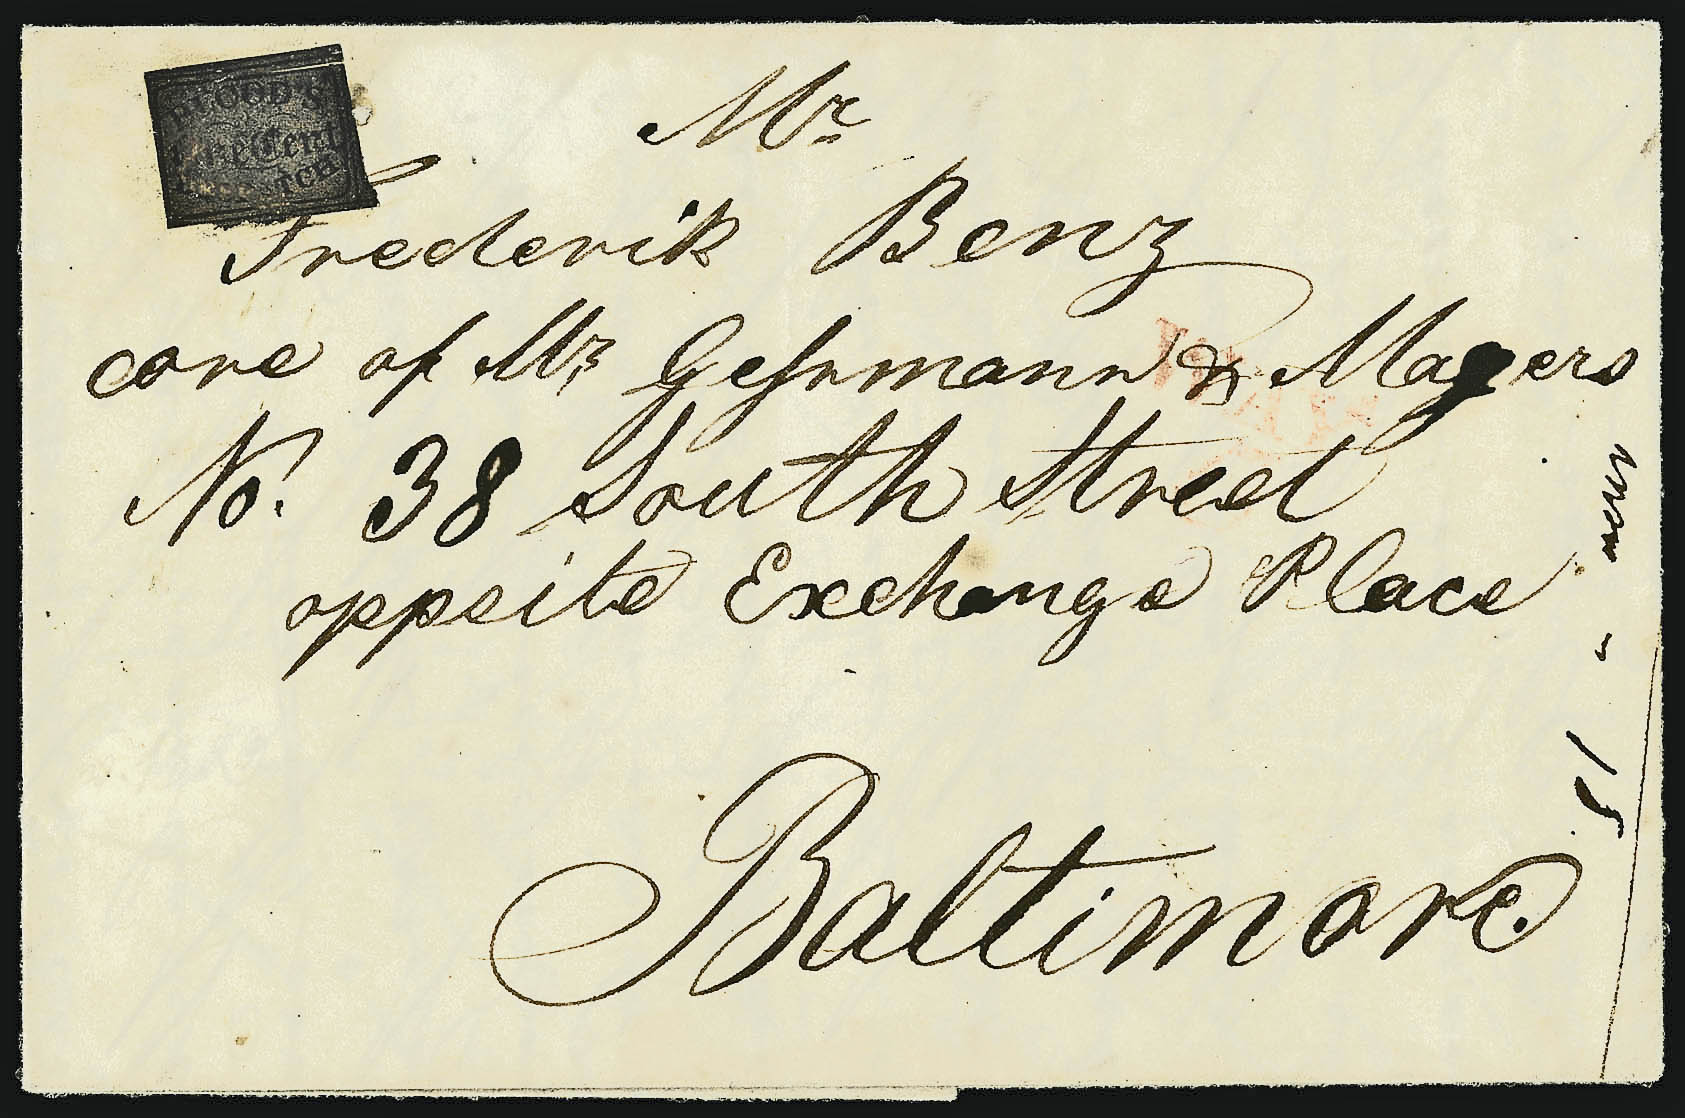 BLOOD'S
One Cent
Mr
Frederik Benz
care of Mr Gehrmann & Magers
No. 38 South Street
oppsite Exchange Place
Baltimore.